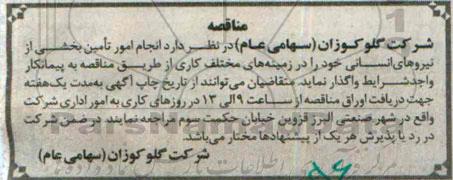 مناقصه
شرکت گلوکوزان (سهامی عام) در نظر دارد انجام امور تأمین بخشی از
نیروهای انسانی خود را در زمینه‌های مختلف کاری از طریق مناقصه به پیمانکار
واجد شرایط واگذار نماید. متقاضیان می‌توانند از تاریخ چاپ آگهی به‌مدت یک‌هفته
جهت دریافت اوراق مناقصه از ساعت ۹ الی ۱۳ در روزهای کاری به امور اداری شرکت
واقع در شهر صنعتی البرز قزوین خیابان حکمت سوم مراجعه نمایند در ضمن شرکت
در رد یا پذیرش هر یک از پیشنهادها مختار می‌باشد.
شرکت گلوکوزان (سهامی عام)